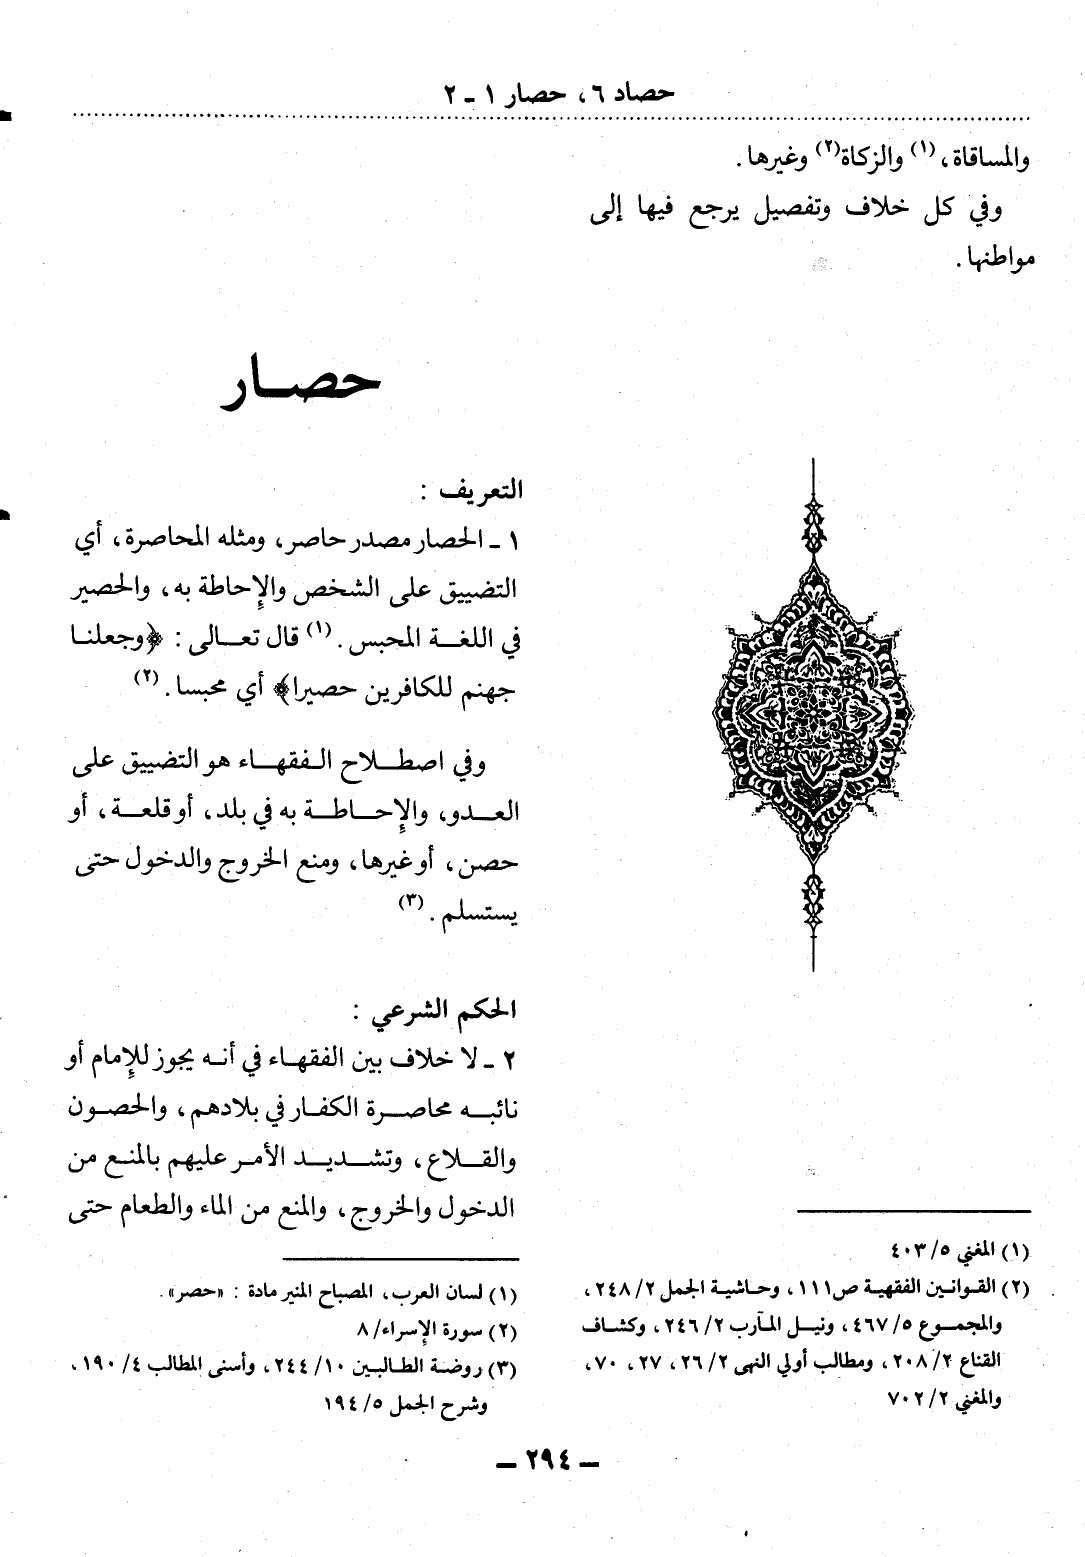 حصاد ٦، حصار ١ - ٢
والمساقاة،(١) والزكاة(٢) وغيرها.
وفي كل خلاف وتفصيل يرجع فيها إلى
مواطنها.
(١) المغني ٥/ ٤٠٣
(٢) القوانين الفقهية ص١١١، وحاشية الجمل ٢/ ٢٤٨،
والمجموع ٥/ ٤٦٧، ونيل المآرب ٢/ ٢٤٦، وكشاف
القناع ٢/ ٢٠٨، ومطالب أولي النهى ٢/ ٢٦، ٢٧، ٧٠،
والمغني ٢/ ٧٠٢
حصار
التعريف :
١ - الحصار مصدر حاصر، ومثله المحاصرة، أي
التضييق على الشخص والإحاطة به، والحصير
في اللغة المحبس.(١) قال تعالى : ﴿وجعلنا
جهنم للكافرين حصيرا﴾ أي محبسا.(٢)
وفي اصطلاح الفقهاء هو التضييق على
العدو، والإحاطة به في بلد، أو قلعة، أو
حصن، أو غيرها، ومنع الخروج والدخول حتى
يستسلم.(٣)
الحكم الشرعي :
٢ - لا خلاف بين الفقهاء في أنه يجوز للإمام أو
نائبه محاصرة الكفار في بلادهم، والحصون
والقلاع، وتشديد الأمر عليهم بالمنع من
الدخول والخروج، والمنع من الماء والطعام حتى
(١) لسان العرب، المصباح المنير مادة : «حصر».
(٢) سورة الإسراء/ ٨
(٣) روضة الطالبين ١٠/ ٢٤٤، وأسنى المطالب ٤/ ١٩٠،
وشرح الجمل ٥/ ١٩٤
- ٢٩٤ -